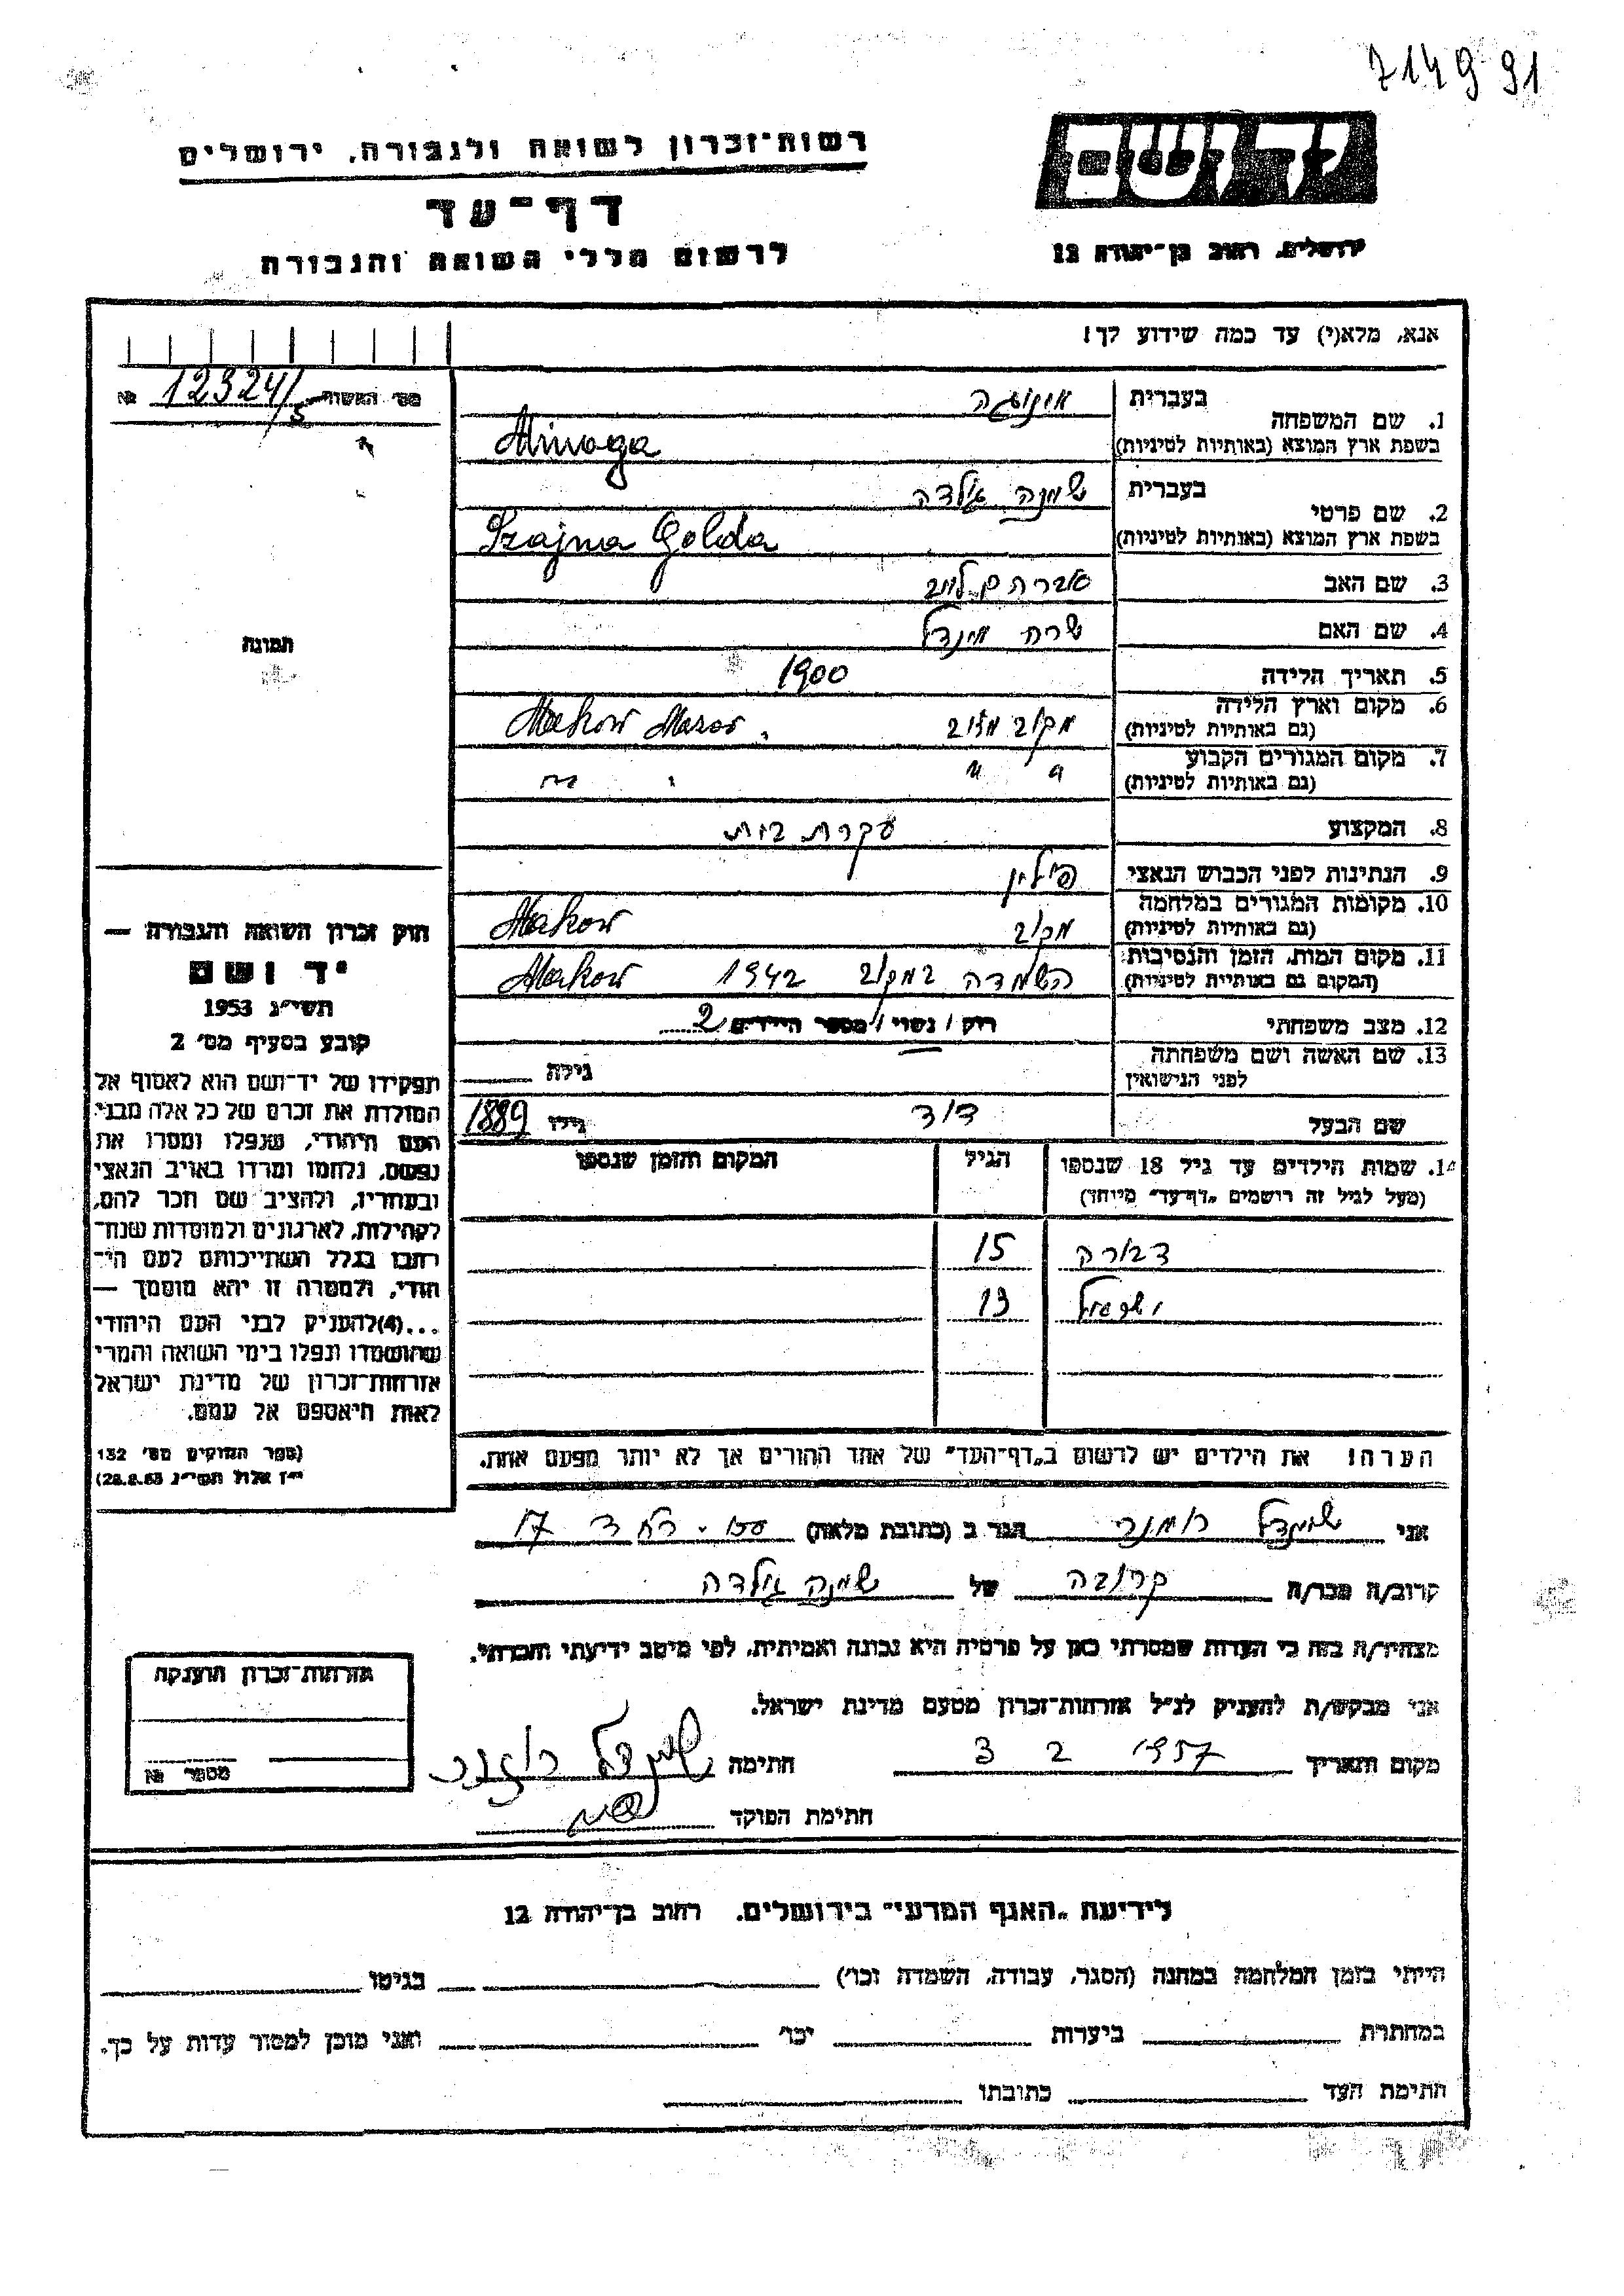 714991
יד ושם
רשות-זכרון לשואה ולגבורה, ירושלים
דף-עד
ירושלים, רחוב בן-יהודה 12
לרשום חללי השואה והגבורה
אנא, מלא(י) עד כמה שידוע לך!
מס' האשור 12324/5 №
1. שם המשפחה
בעברית
בשפת ארץ המוצא (באותיות לטיניות)
2. שם פרטי
בעברית שיינה גולדה
בשפת ארץ המוצא (באותיות לטיניות) Szajna Golda
3. שם האב אברהם לייב
4. שם האם שרה מינדל
5. תאריך הלידה 1900
6. מקום וארץ הלידה מקוב מזוב Makow Mazow.
(גם באותיות לטיניות)
7. מקום המגורים הקבוע
(גם באותיות לטיניות)
8. המקצוע עקרת בית
9. הנתינות לפני הכבוש הנאצי פולין
10. מקומות המגורים במלחמה מקוב Makow
(גם באותיות לטיניות)
11. מקום המות, הזמן והנסיבות השמדה במקוב 1942 Makow
(המקום גם באותיות לטיניות)
12. מצב משפחתי רוק / נשוי / מספר הילדים 2
13. שם האשה ושם משפחתה
לפני הנישואין גילה
שם הבעל דוד גילו 1889
14. שמות הילדים עד גיל 18 שנספו הגיל המקום והזמן שנספו
(מעל לגיל זה רושמים "דף-עד" מיוחד)
דבורה 15
ישראל 13
הערה! את הילדים יש לרשום ב"דף-העד" של אחד ההורים אך לא יותר מפעם אחת.
תמונה
חוק זכרון השואה והגבורה —
יד ושם
תשי"ג 1953
קובע בסעיף מס' 2
תפקידו של יד-ושם הוא לאסוף אל
המולדת את זכרם של כל אלה מבני
העם היהודי, שנפלו ומסרו את
נפשם, נלחמו ומרדו באויב הנאצי
ובעוזריו, ולהציב שם וזכר להם,
לקהילות, לארגונים ולמוסדות שנח-
רבו בגלל השתייכותם לעם הי-
הודי, ולמטרה זו יהא מוסמך —
...(4)להעניק לבני העם היהודי
שהושמדו ונפלו בימי השואה והמרי
אזרחות-זכרון של מדינת ישראל
לאות היאספם אל עמם.
(ספר החוקים מס' 132
י"ז אלול תשי"ג 28.8.53)
אני הגר ב (כתובת מלאה) 17
קרוב/ה מכר/ה קרובה של שיינה גולדה
מצהיר/ה בזה כי העדות שמסרתי כאן על פרטיה היא נכונה ואמיתית, לפי מיטב ידיעתי והכרתי.
אני מבקש/ת להעניק לנ"ל אזרחות-זכרון מטעם מדינת ישראל.
מקום ותאריך 1957 2 3 חתימה
חתימת הפוקד
אזרחות-זכרון הוענקה
מספר №
לידיעת "האגף המדעי" בירושלים, רחוב בן-יהודה 12
הייתי בזמן המלחמה במחנה (הסגר, עבודה, השמדה וכו') בגיטו
במחתרת ביערות וכו' ואני מוכן למסור עדות על כך.
חתימת העד כתובתו